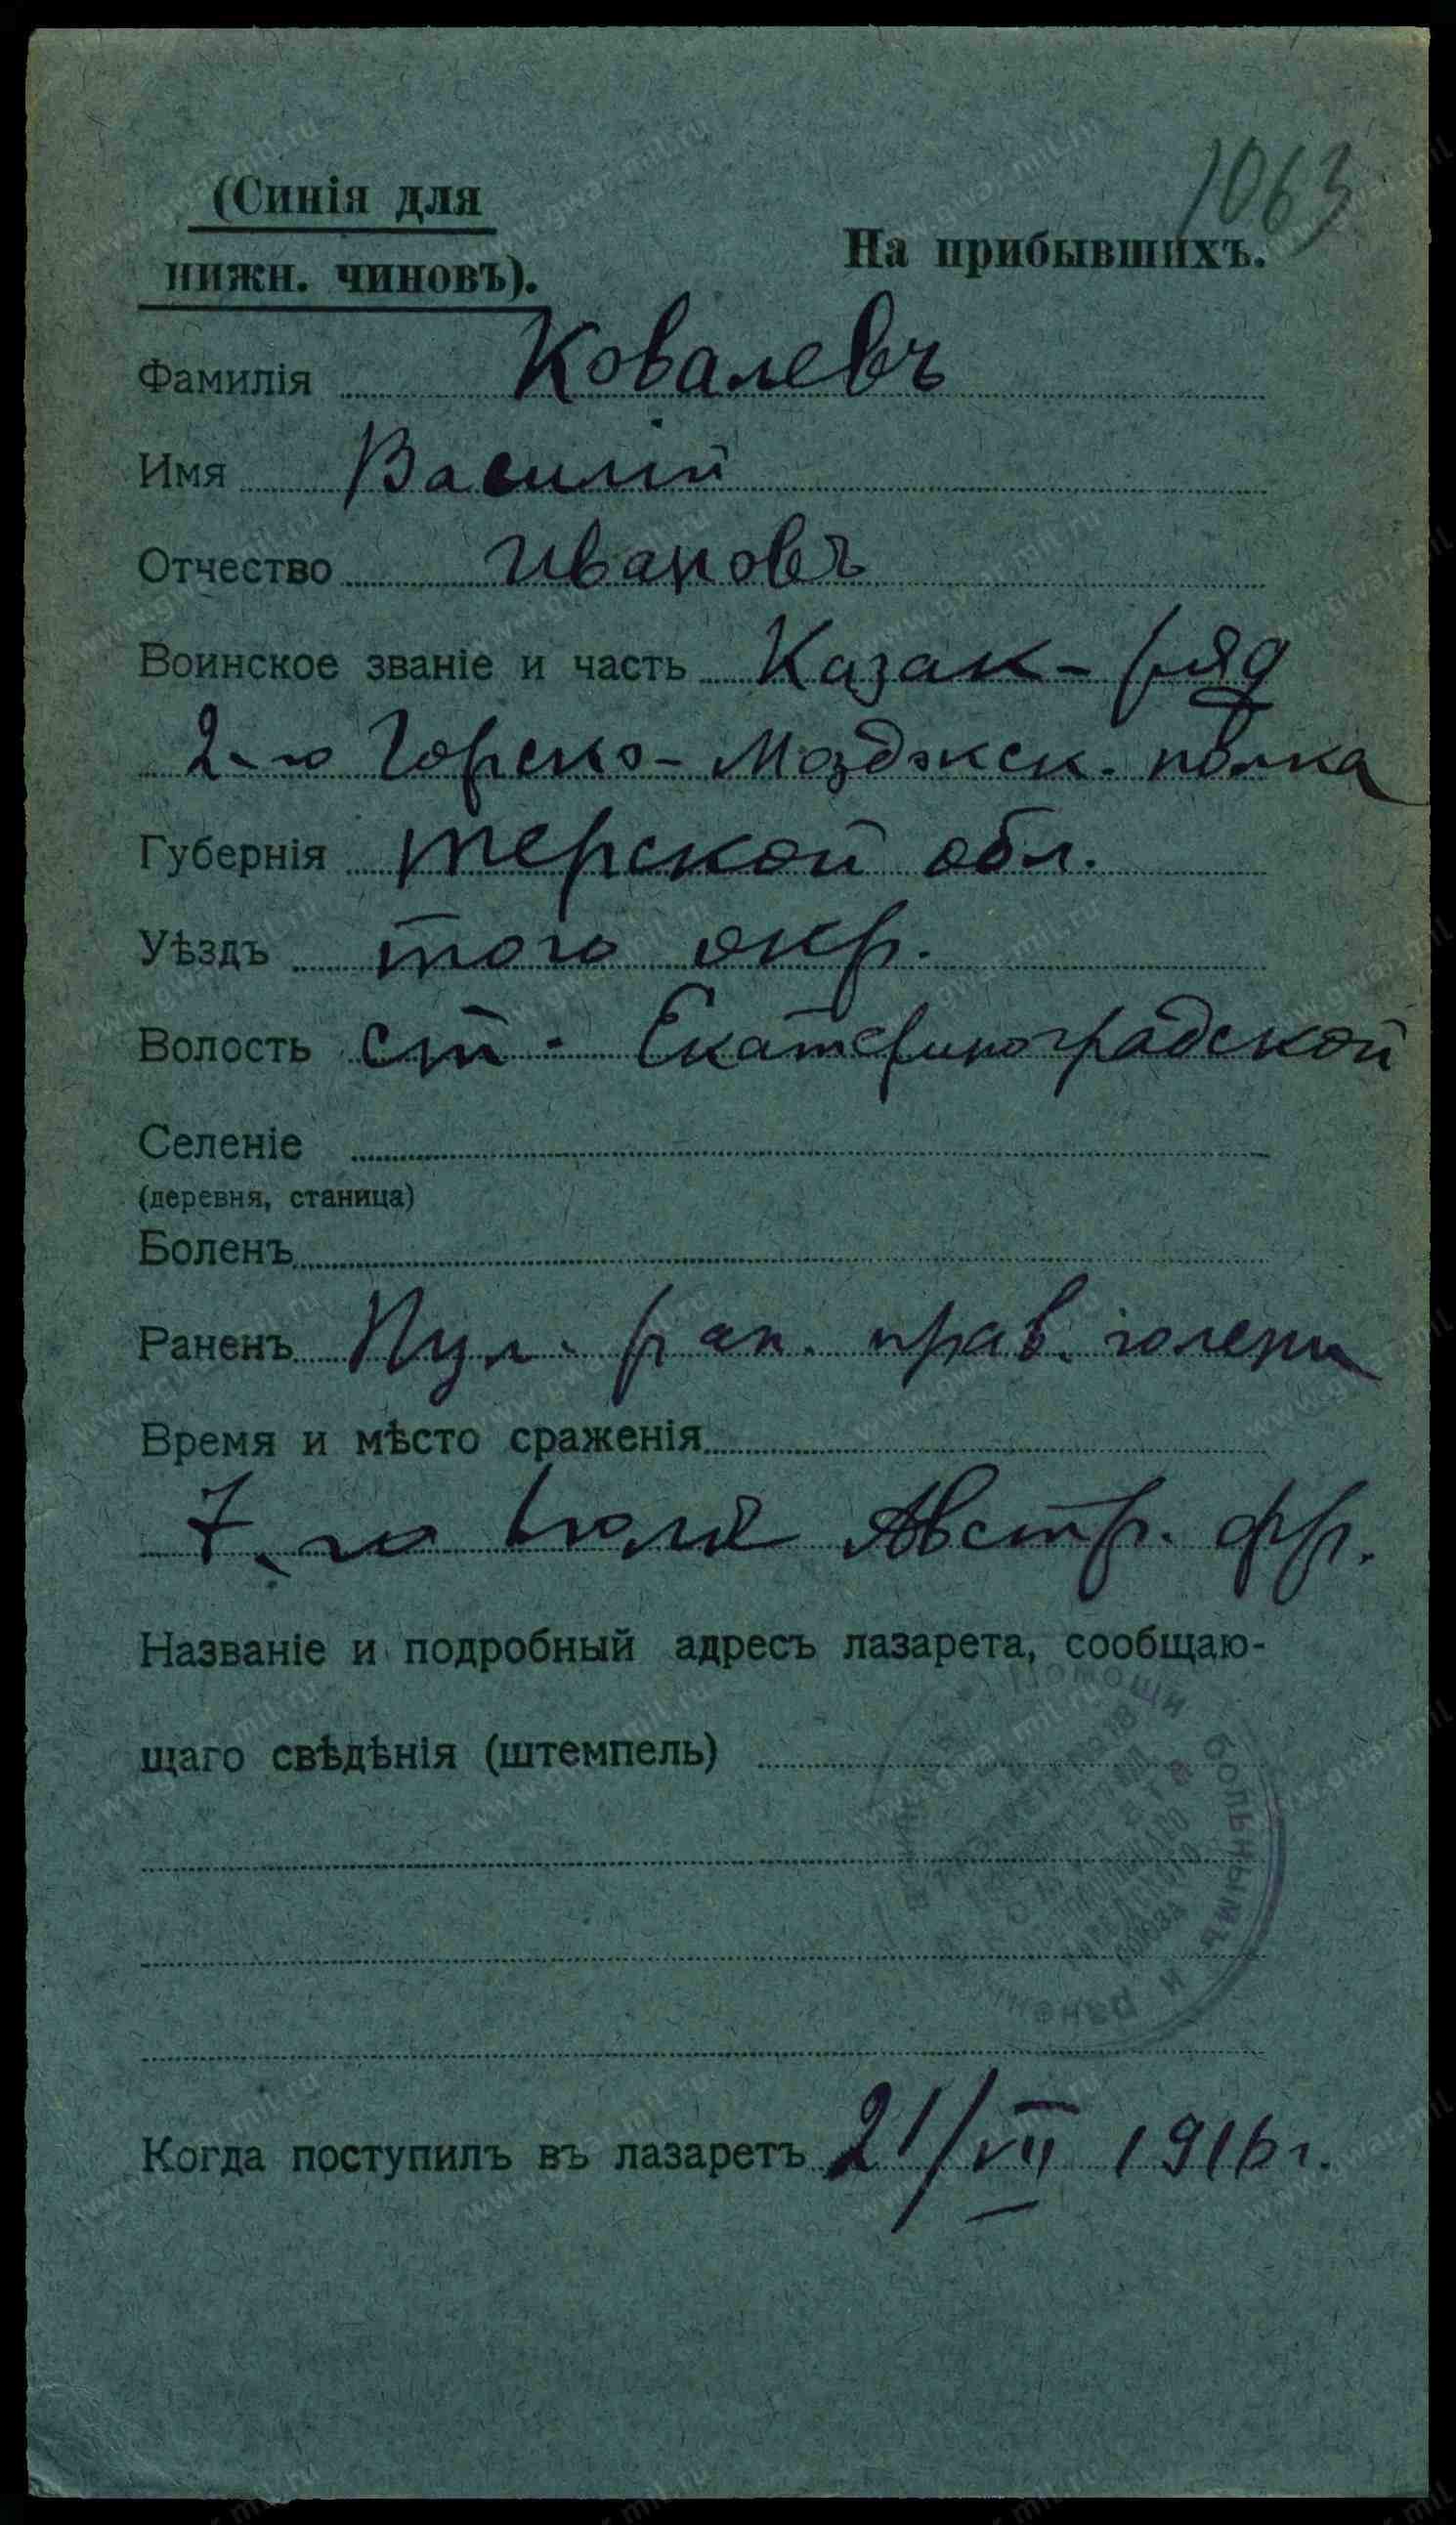 1063
(Синія для
нижн. чиновъ).
На прибывшихъ.
Фамилія Ковалевъ
Имя Василій
Отчество Ивановъ
Воинское званіе и часть Казак-ряд
2-го Горско-Моздокск. полка
Губернія Терской обл.
Уѣздъ того окр.
Волость ст. Екатериноградской
Селеніе
(деревня, станица)
Боленъ
Раненъ Пул. ран. прав. голени
Время и мѣсто сраженія
7-го Іюля Австр. фр.
Названіе и подробный адресъ лазарета, сообщаю-
щаго свѣдѣнія (штемпель)
Помощи больнымъ и
союза
Когда поступилъ въ лазаретъ 21/VII 1916 г.